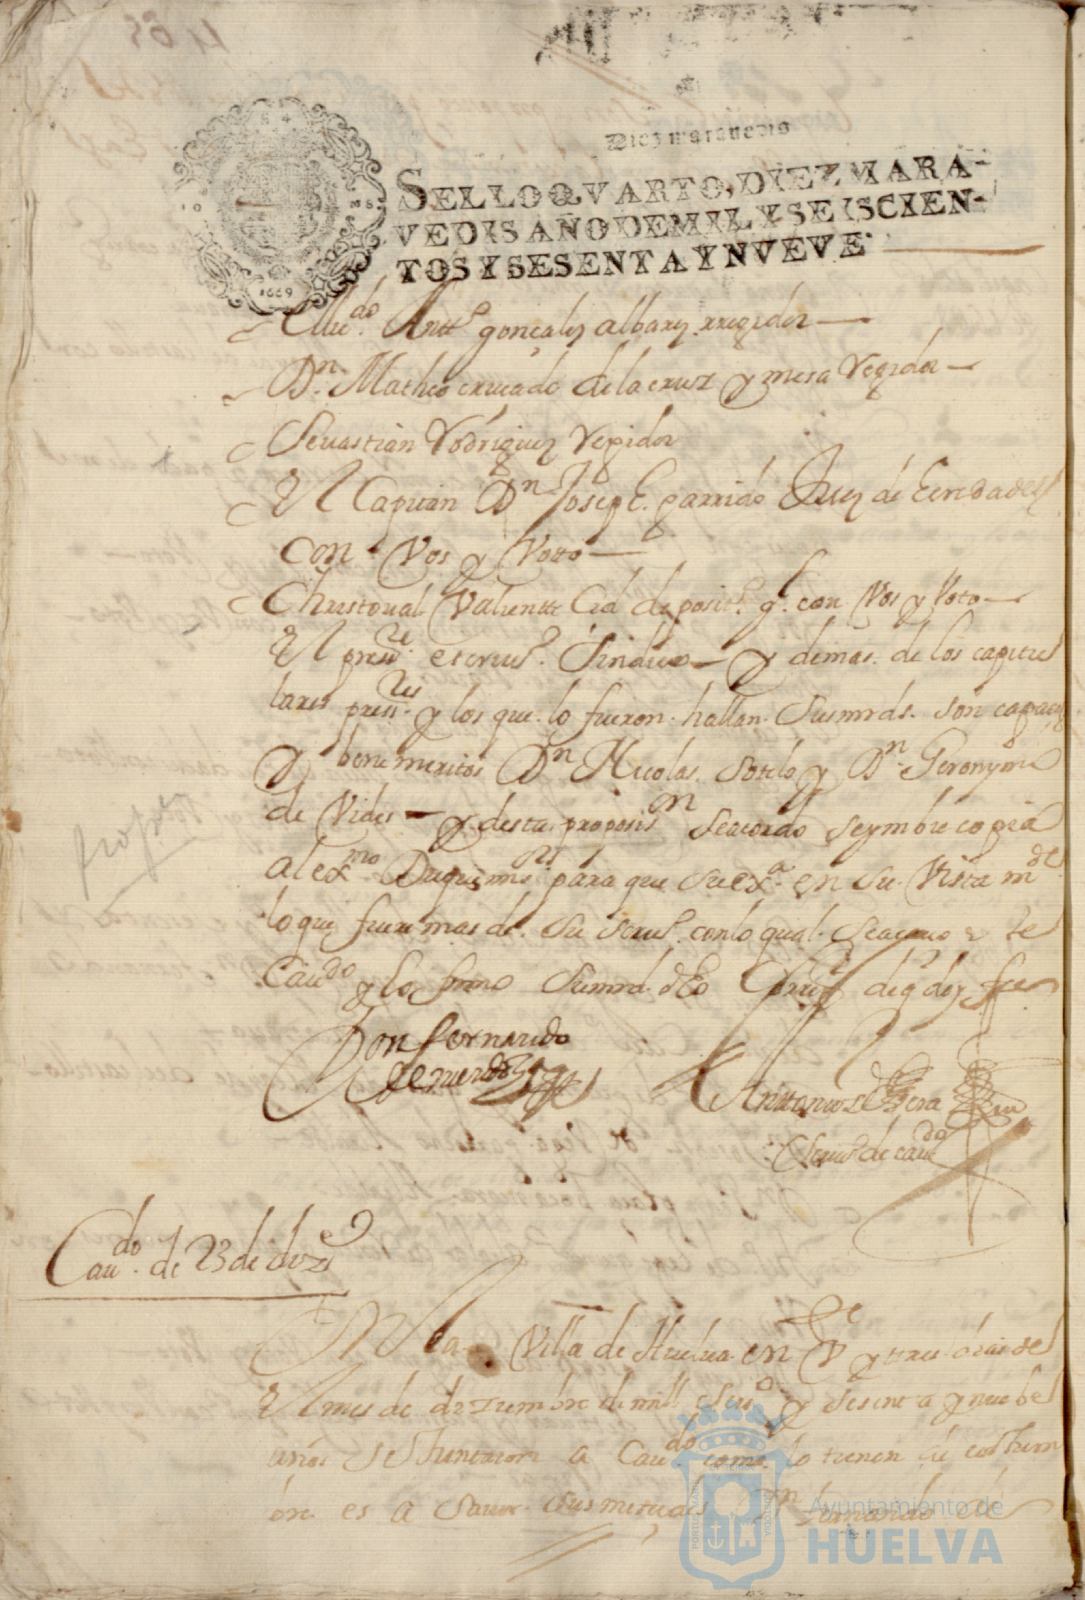 Diez maravedis
SELLO QVARTO, DIEZ MARA-
VEDIS AÑO DE MIL Y SEISCIEN-
TOS Y SESENTA Y NVEVE
1669
Antto gonçales albarez rregidor
Dn. Matheo cruçado de la cruz y mesa Regidor
Sevastian Rodriguez Regidor
El Capitan Dn Joseph garrido Juez de Eeredades
Con Vos y Voto
Christoual Valiente deposito. gl. con Vos y Voto
El preste escriuo. Sindico y demas de los capitu
lares press.tes y los que lo fueron hallan Susmrds. son capaces
y benemeritos Dn Nicolas Sotelo y Dn Geronymo
de Vides y desta proposisn Seacordo seymbie copia
al exmo Duque mi sr para que su exa. en su Vista mde
lo que fuere mas de su seruo. con lo qual Seacavo este
Caudo y lo firmo Sumrd. dho Corrr de q doy fee
Don fernando
Anttonio de
Escriuo de caudo
Caudo. de 23 de dize
En la Villa de Huelua en Ve y tres dias del
El mes de diziembre de mill Seiso y Sesenta y nuebe
años se Juntaron a Caudo como lo tienen de costum
bre es a Sauer Sus merçedes Dn fernando de
Ayuntamiento de
HUELVA